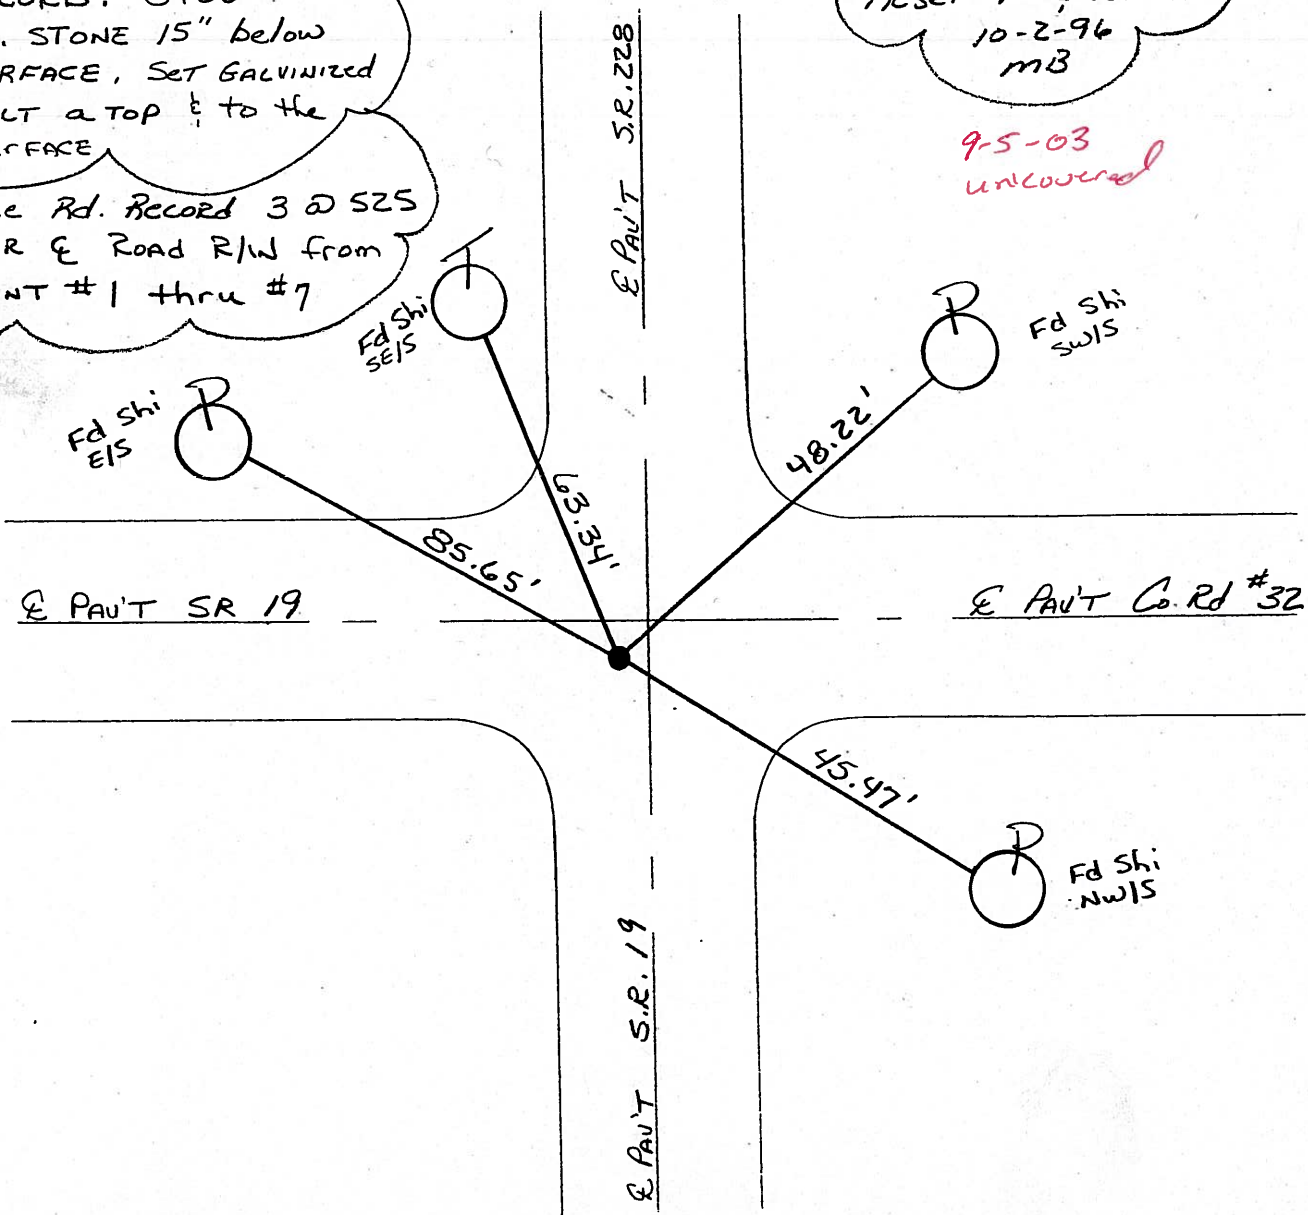 . STONE 15" below
RFACE, SET GALVINIZED
LT a TOP & to the
rFACE
e Rd. Record 3 @ 525
R ℄ ROAD R/W from
NT #1 thru #7
10-2-96
MB
9-5-03
uncovered
℄ PAV'T S.R. 228
Fd Shi
SE/S
Fd Shi
SW/S
Fd Shi
E/S
48.22'
63.34'
85.65'
℄ PAV'T SR 19
℄ PAV'T Co. Rd #32
45.47'
Fd Shi
NW/S
℄ PAV'T S.R. 19